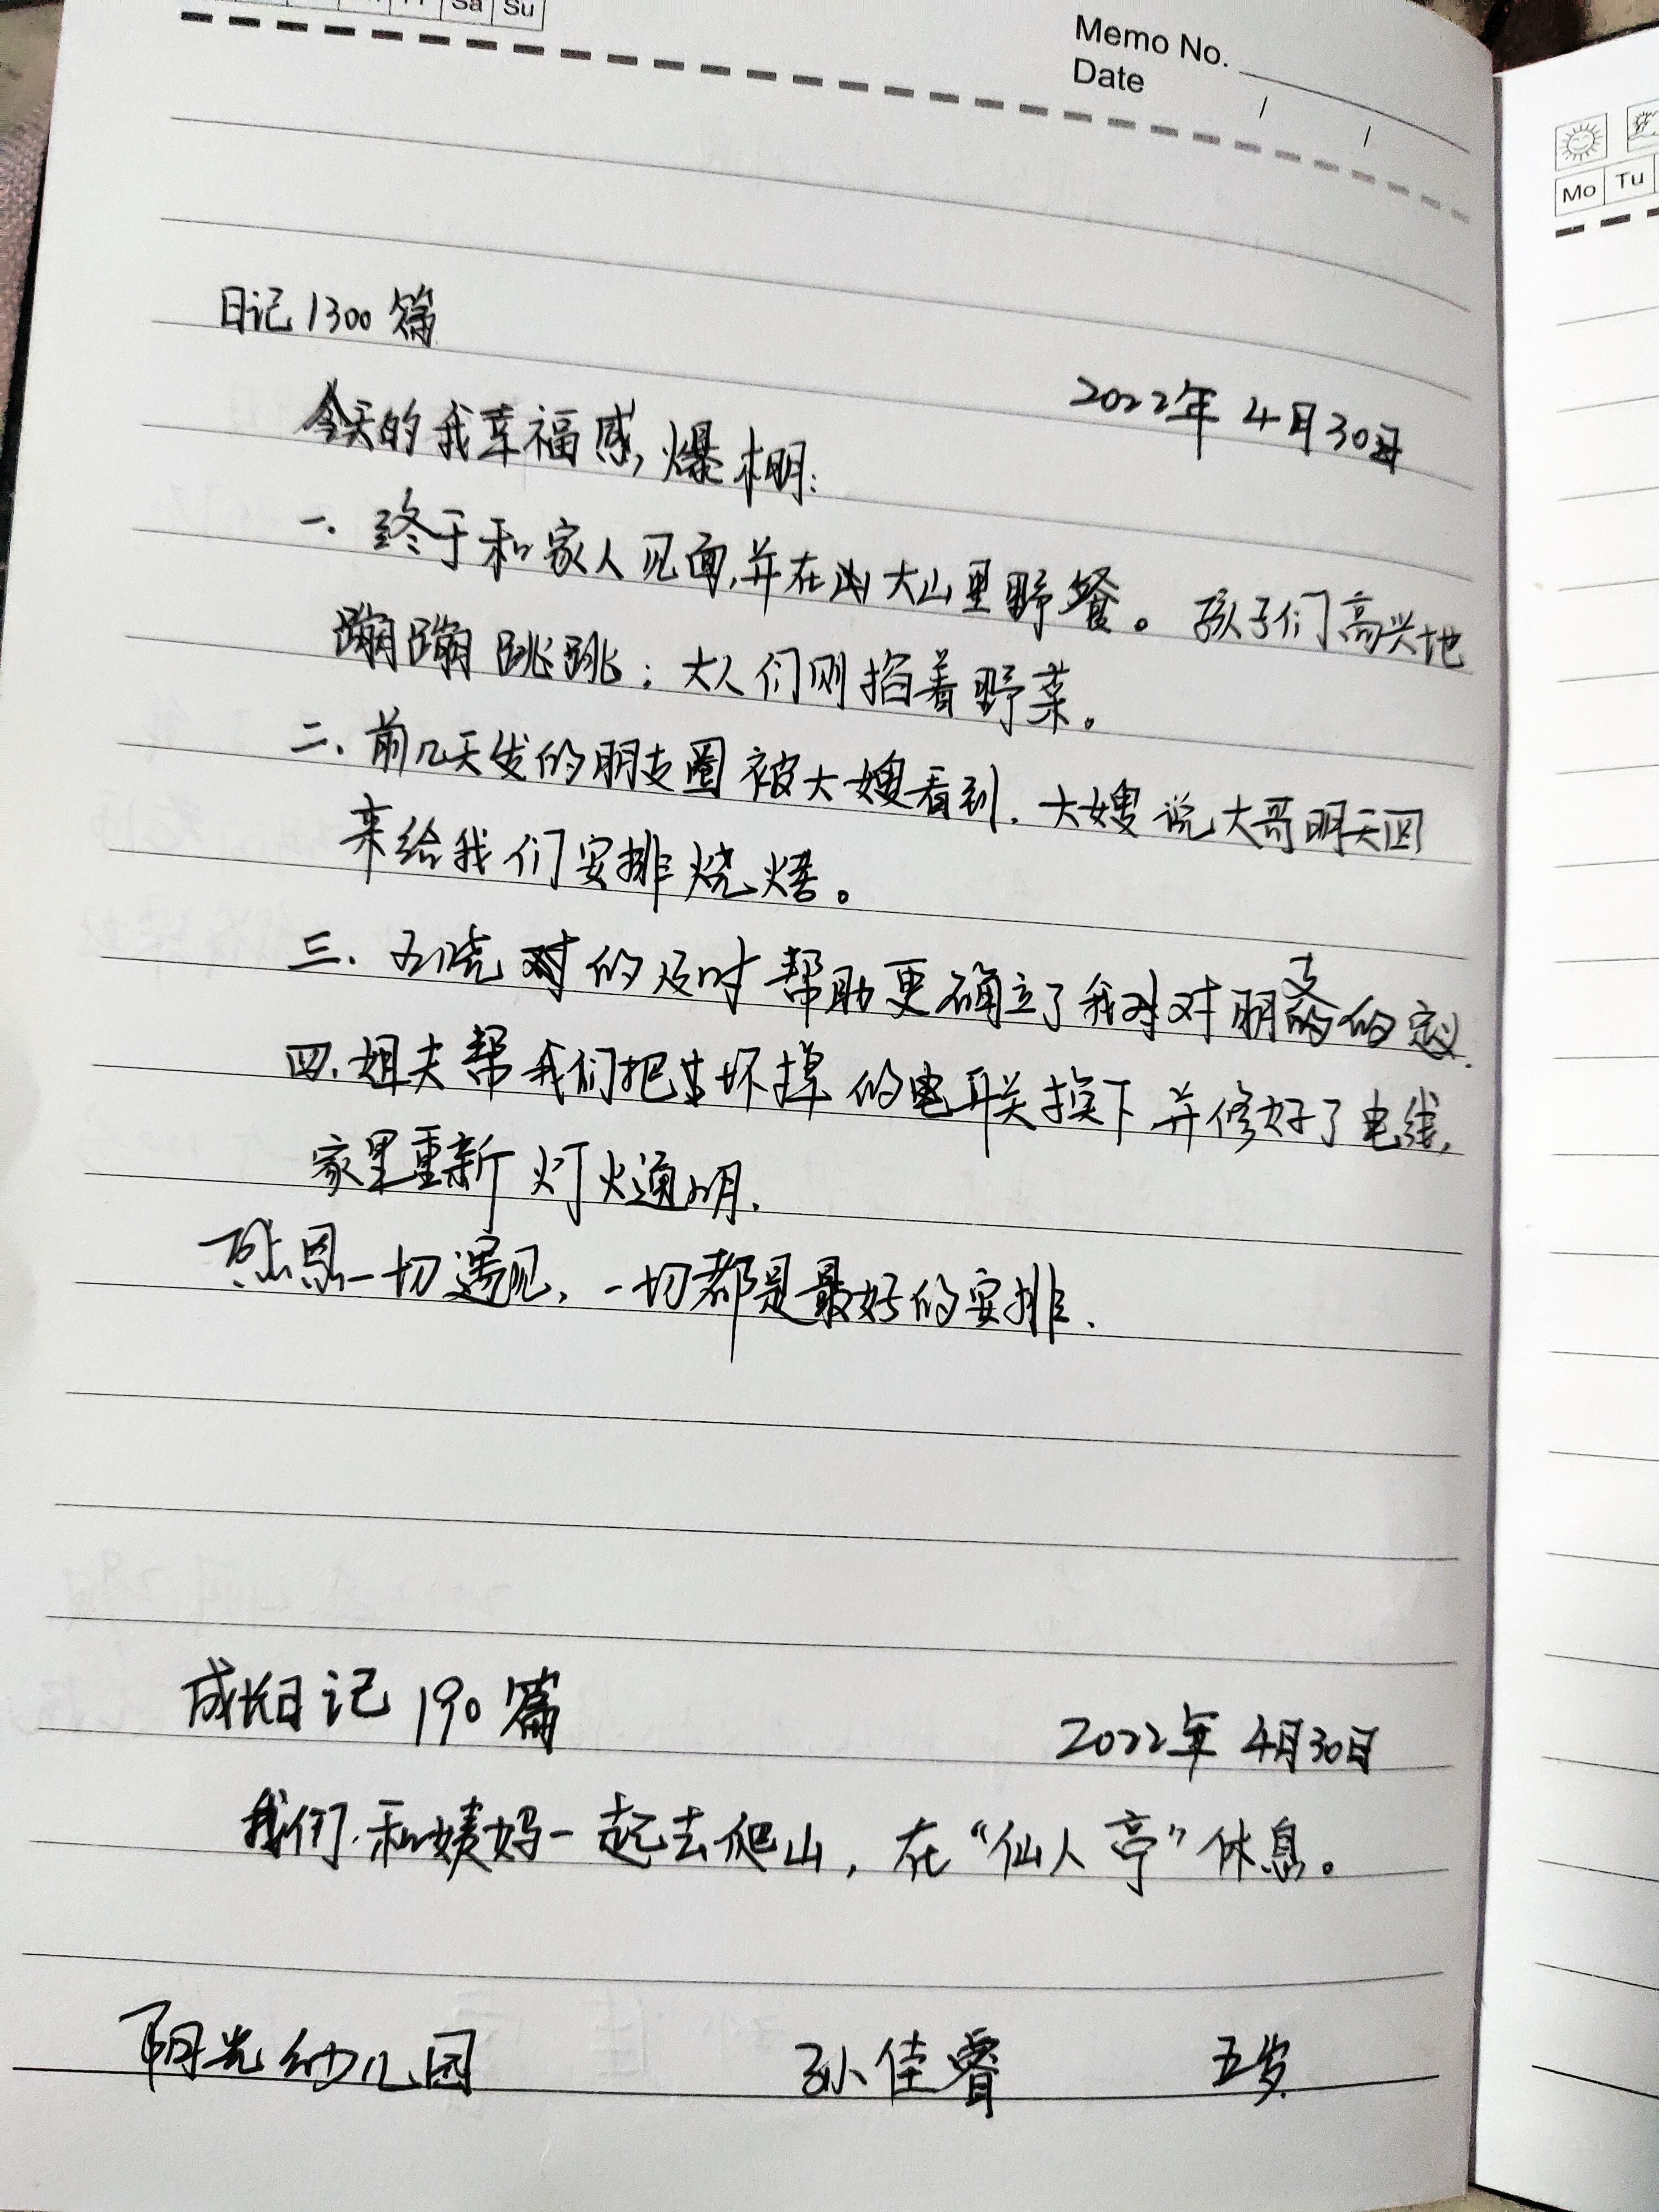 Sa Su
Memo No.
Date / /
Mo Tu
日记1300篇
2022年4月30日
今天的我幸福感,爆棚:
一.终于和家人见面,并在大山里野餐。孩子们高兴地
蹦蹦跳跳;大人们则掐着野菜。
二.前几天发的朋友圈被大嫂看到.大嫂说大哥明天回
来给我们安排烧烤。
三. 的及时帮助更确立了我对对朋友的定义.
四.姐夫帮我们把坏掉的电联关换下并修好了电线,
家里重新灯火通明.
感恩一切遇见,一切都是最好的安排.
成长日记190篇
2022年4月30日
我们和姨妈一起去爬山,在“仙人亭”休息。
阳光幼儿园 孙佳睿 五岁